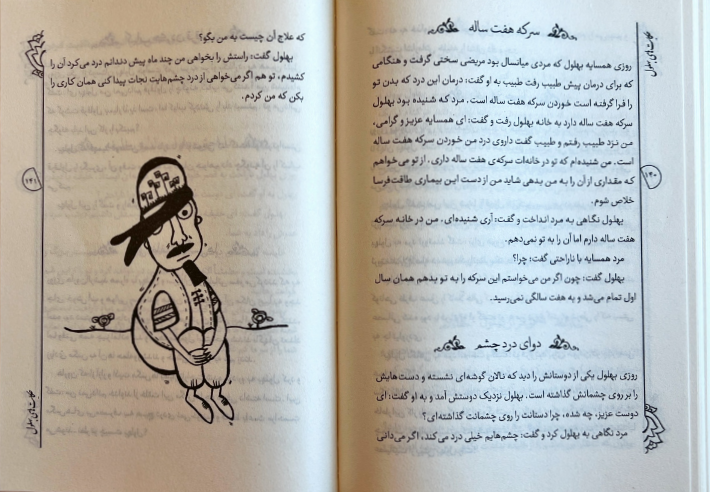 سرکه هفت ساله
روزی همسایه بهلول که مردی میانسال بود مریضی سختی گرفت و هنگامی
که برای درمان پیش طبیب رفت طبیب به او گفت: درمان این درد که بدن تو
را فرا گرفته است خوردن سرکه هفت ساله است. مرد که شنیده بود بهلول
سرکه هفت ساله دارد به خانه بهلول رفت و گفت: ای همسایه عزیز و گرامی،
من نزد طبیب رفتم و طبیب گفت داروی درد من خوردن سرکه هفت ساله
است. من شنیده‌ام که تو در خانه‌ات سرکه‌ی هفت ساله داری. از تو می‌خواهم
که مقداری از آن را به من بدهی شاید من از دست این بیماری طاقت‌فرسا
خلاص شوم.
بهلول نگاهی به مرد انداخت و گفت: آری شنیده‌ای. من در خانه سرکه
هفت ساله دارم اما آن را به تو نمی‌دهم.
مرد همسایه با ناراحتی گفت: چرا؟
بهلول گفت: چون اگر من می‌خواستم این سرکه را به تو بدهم همان سال
اول تمام می‌شد و به هفت سالگی نمی‌رسید.
دوای درد چشم
روزی بهلول یکی از دوستانش را دید که نالان گوشه‌ای نشسته و دست‌هایش
را بر روی چشمانش گذاشته است. بهلول نزدیک دوستش آمد و به او گفت: ای
دوست عزیز، چه شده، چرا دستانت را روی چشمانت گذاشته‌ای؟
مرد نگاهی به بهلول کرد و گفت: چشم‌هایم خیلی درد می‌کند، اگر می‌دانی
حکایت‌های بهلول
۱۴۰
که علاج آن چیست به من بگو؟
بهلول گفت: راستش را بخواهی من چند ماه پیش دندانم درد می‌کرد آن را
کشیدم، تو هم اگر می‌خواهی از درد چشم‌هایت نجات پیدا کنی همان کاری را
بکن که من کردم.
۱۴۱
حکایت‌های بهلول